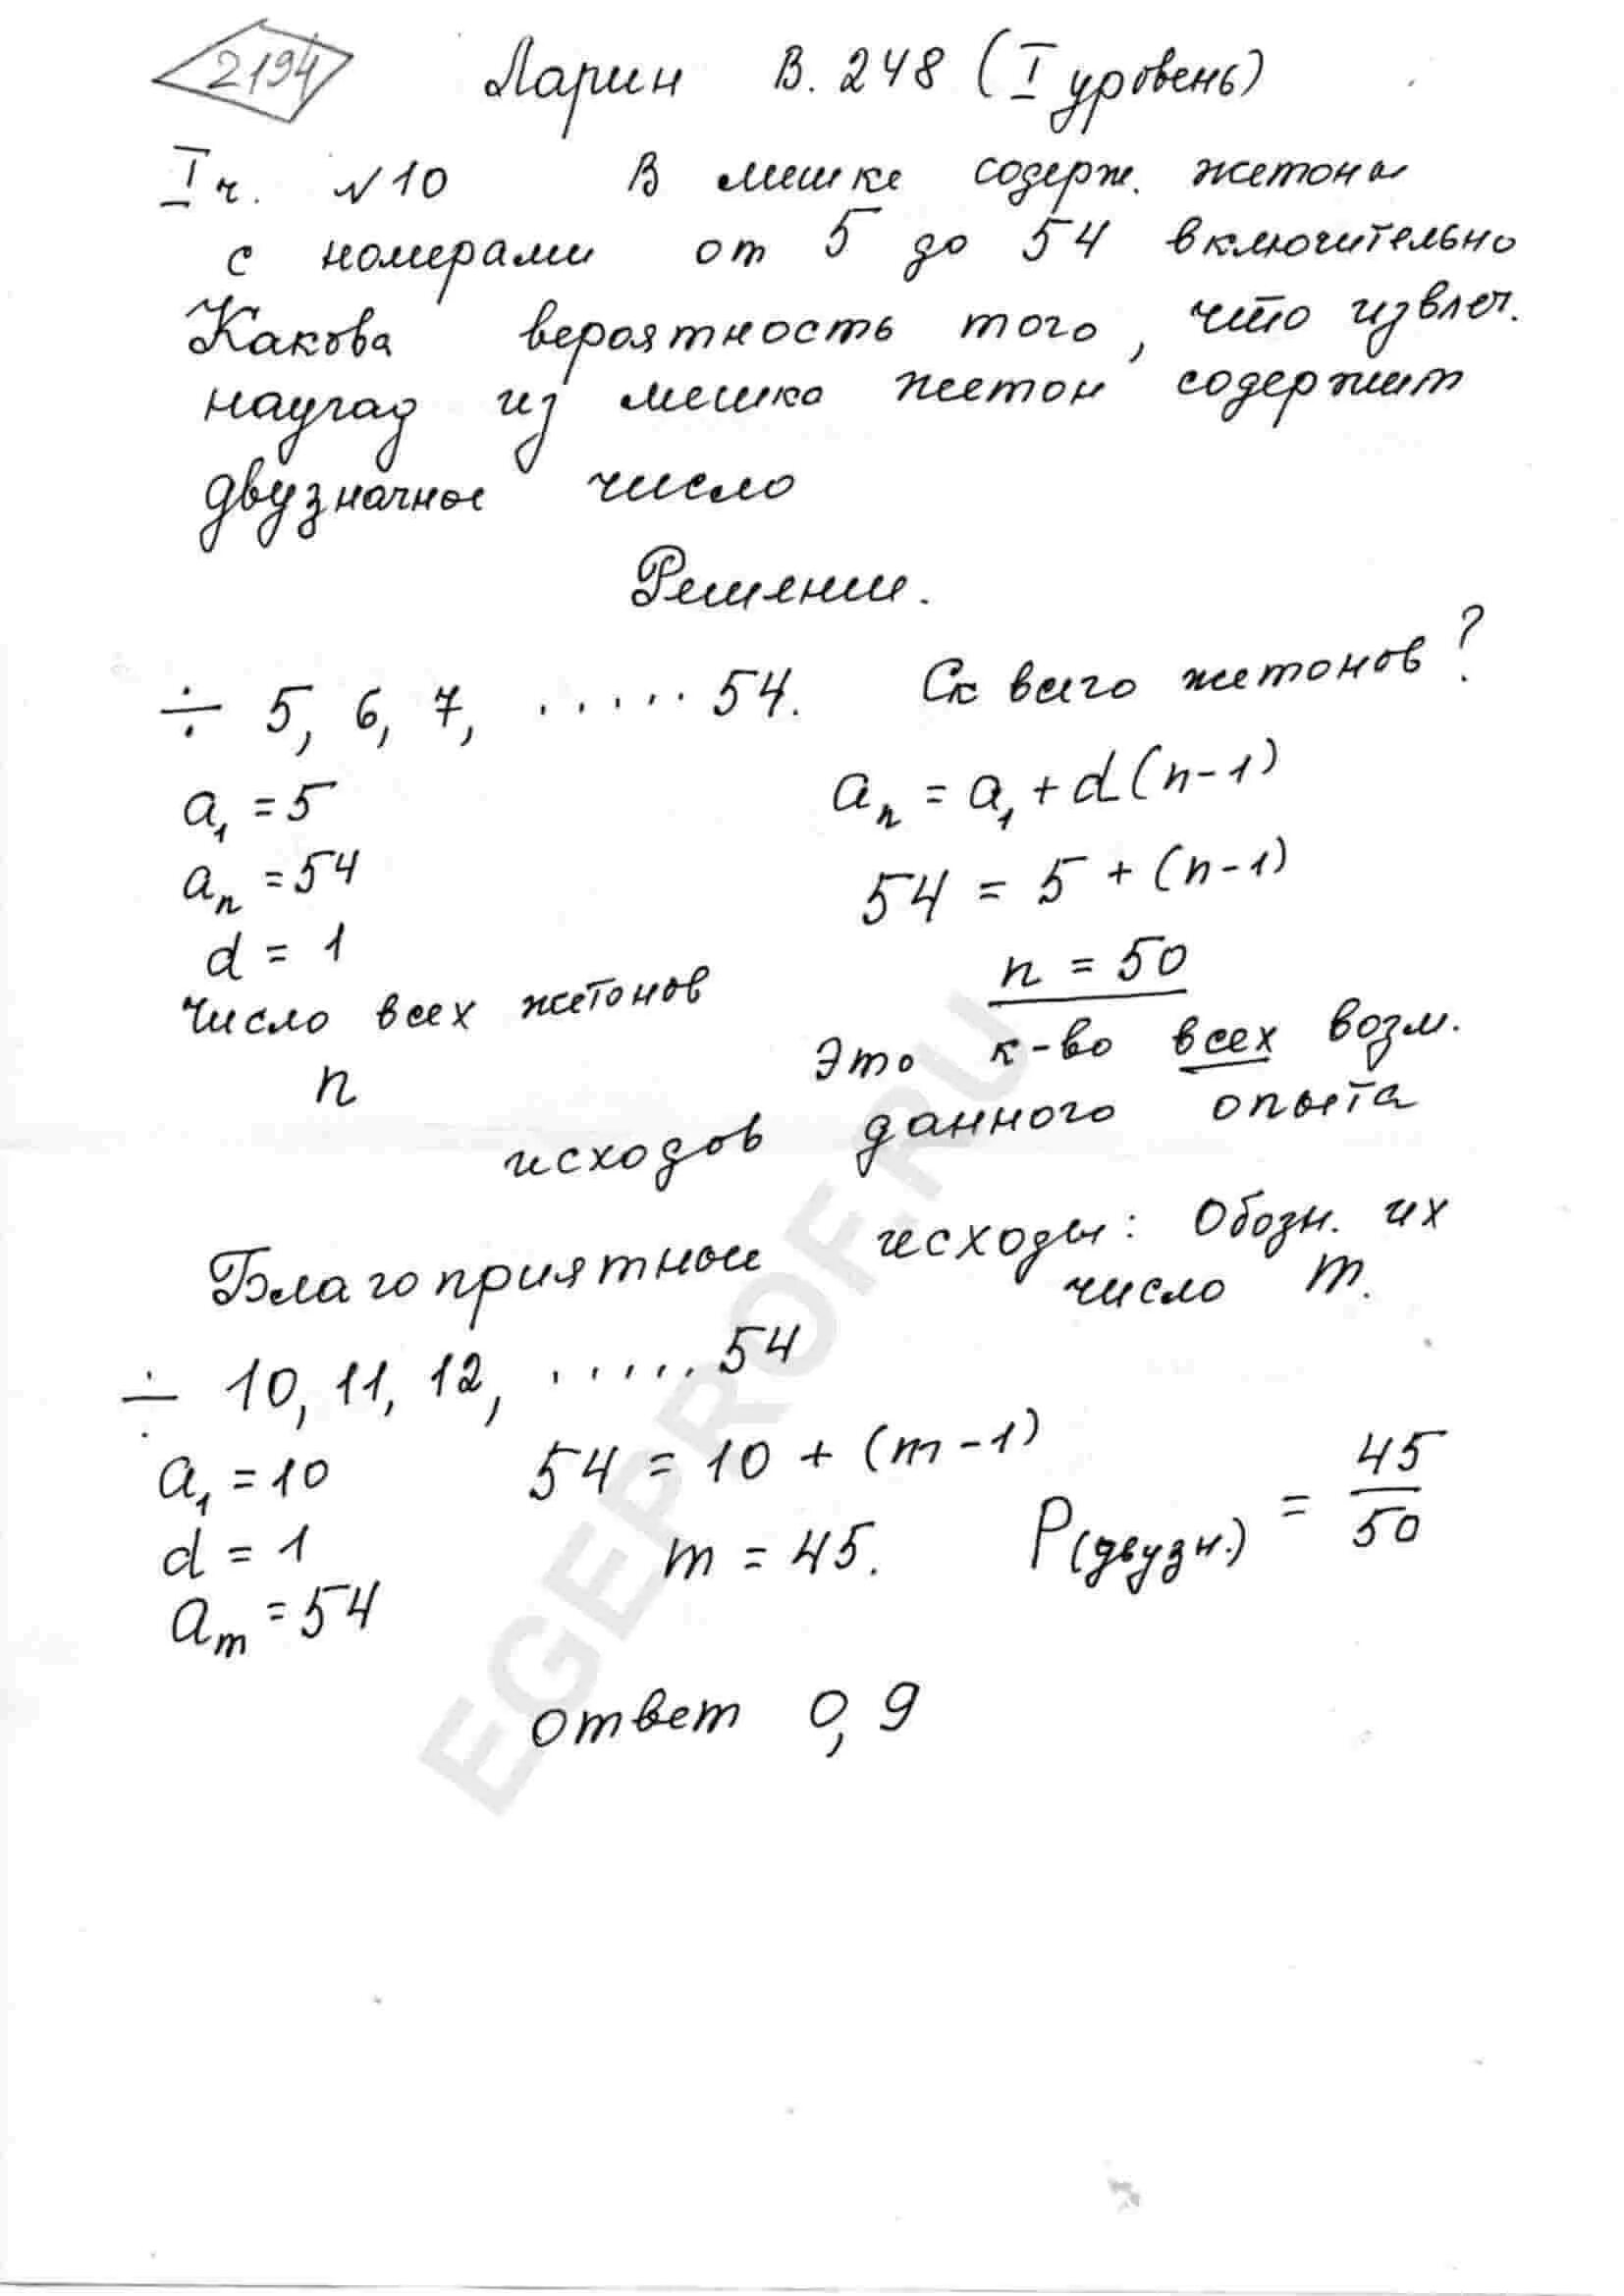 2194
Ларин В. 248 (I уровень)
I ч. №10 В мешке содерж. жетоны
с номерами от 5 до 54 включительно
Какова вероятность того, что извлеч.
наугад из мешка жетон содержит
двузначное число
Решение.
÷ 5, 6, 7, ..... 54. Ск всего жетонов?
a₁ = 5 aₙ = a₁ + d(n-1)
aₙ = 54 54 = 5 + (n-1)
d = 1 n = 50
число всех жетонов
n Это к-во всех возм.
исходов данного опыта
Благоприятные исходы: Обозн. их
число m.
÷ 10, 11, 12, ..... 54
a₁ = 10 54 = 10 + (m-1)
d = 1 m = 45. P(двузн.) = 45/50
aₘ = 54
ответ 0,9
EGEPROF.RU